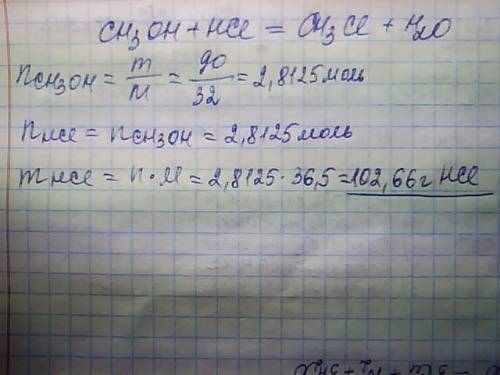 CH₃OH + HCl = CH₃Cl + H₂O
nCH₃OH = m/M = 90/32 = 2,8125 моль
nHCl = nCH₃OH = 2,8125 моль
mHCl = n·M = 2,8125·36,5 = 102,66г HCl